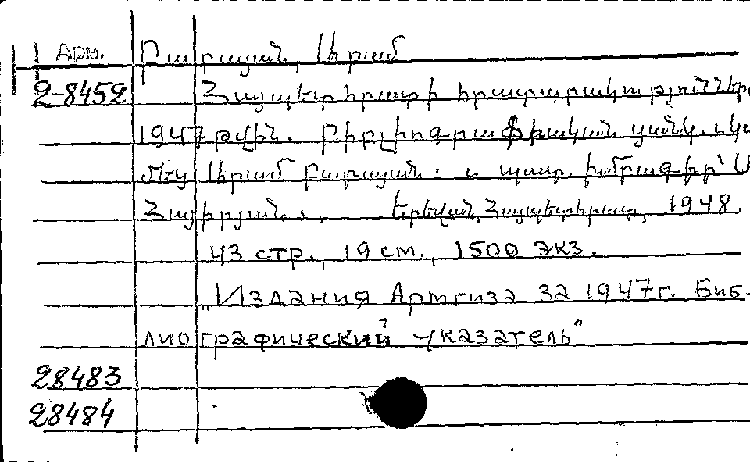 Арм. Բաբայան, Արամ
2-8452 Հայպետհրատի հրատարակությունները
1947 թվին. Բիբլիոգրաֆիական ցանկ. Կազ
մեց Արամ Բաբայան. պատ. խմբագիր՝ Ա
Երևան, Հայպետհրատ, 1948.
43 стр., 19 см., 1500 экз.
„Издания Армгиза за 1947г. Биб-
лиографический указатель"
28483
28484